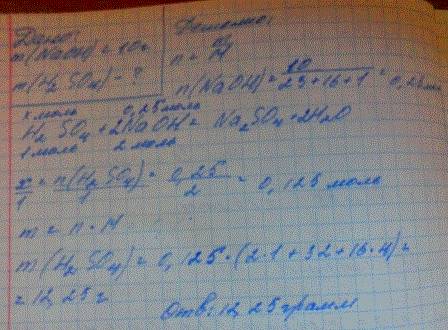 Дано:
m(NaOH) = 10г
m(H₂SO₄) - ?
Решение:
n = m/M
n(NaOH) = 10/23+16+1 = 0,25моль
x моль 0,25моль
H₂SO₄ + 2NaOH = Na₂SO₄ + 2H₂O
1 моль 2 моль
x/1 = n(H₂SO₄)/1 = 0,25/2 = 0,125 моль
m = n · M
m(H₂SO₄) = 0,125 · (2·1 + 32 + 16·4) =
= 12,25 г
Отв: 12,25 грамм